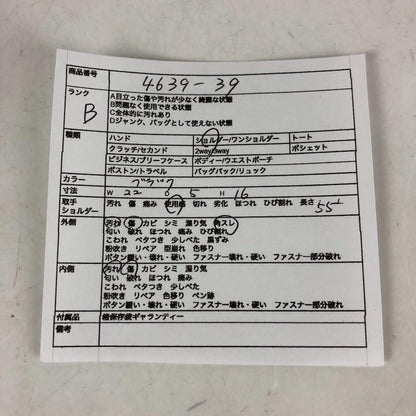 商品番号 4639-39
ランク B
A目立った傷や汚れが少なく綺麗な状態
B問題なく使用できる状態
C全体的に汚れあり
Dジャンク、バッグとして使えない状態
種類 ハンド ショルダー/ワンショルダー トート
クラッチ/セカンド 2way/3way ポシェット
ビジネス/ブリーフケース ボディー/ウエストポーチ
ボストン/トラベル バックパック/リュック
カラー ブラック
寸法 W 22 D 5 H 16
取手 ショルダー 汚れ 傷 痛み 使用感 切れ 劣化 ほつれ ひび割れ 長さ 55
外側 汚れ 傷 カビ シミ 湿り気 角スレ
匂い 破れ ほつれ 痛み ひび割れ
こわれ ベタつき 少しべた 黒ずみ
粉吹き リペア 型崩れ 色移り
ボタン緩い・壊れ・硬い ファスナー壊れ・硬い ファスナー部分破れ
内側 汚れ 傷 カビ シミ 湿り気
匂い 破れ ほつれ 痛み
こわれ ベタつき 少しべた
粉吹き リペア 色移り ペン跡
ボタン緩い・壊れ・硬い ファスナー壊れ・硬い ファスナー部分破れ
付属品 箱保存袋ギャランティー
備考